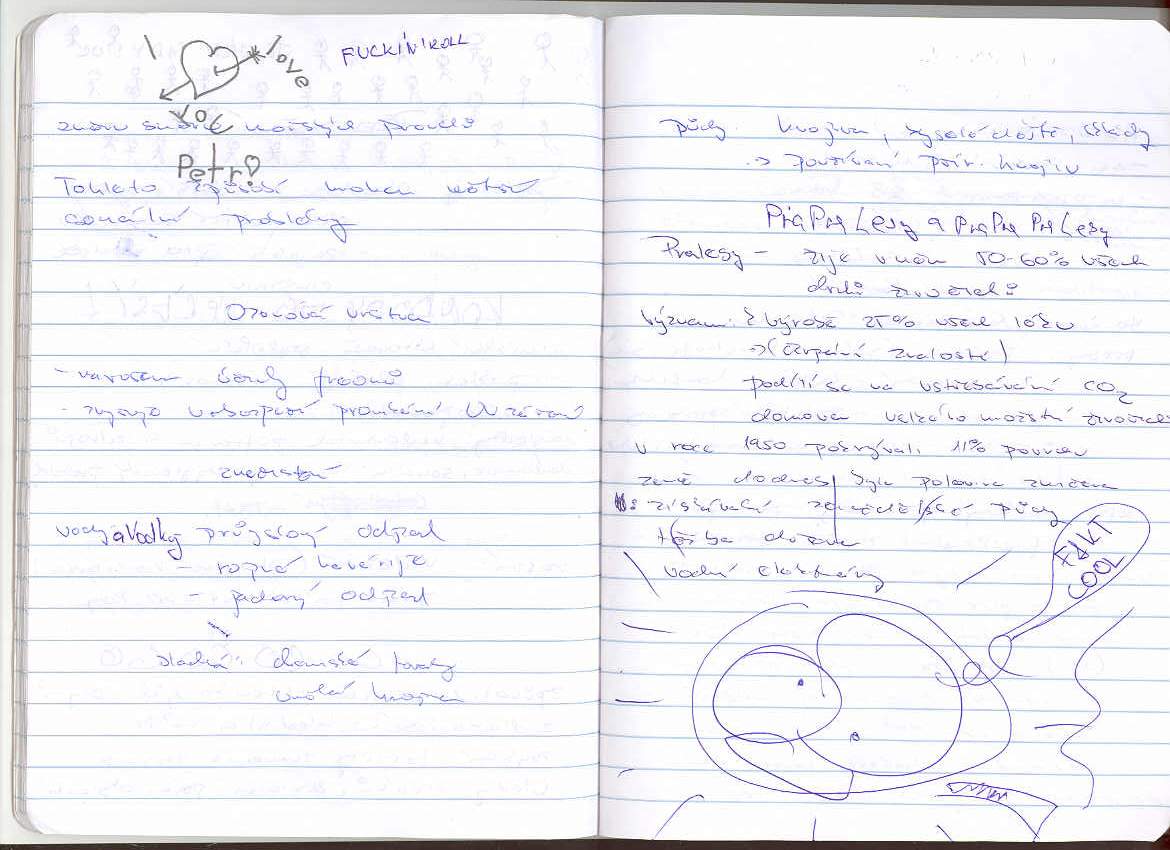 I love
FUCKIN'ROLL
YOU
změnu směrů mořských proudů
Petr
Tohleto způsobí mohou
sociální problémy
Ozonová vrstva
- narušena úseky freonů
- zvyšuje nebezpečí pronikání UV záření
znečištění
vody a Vodky průmyslový odpad
- ropné havárije
- jaderný odpad
sladká: domské
umělá hnojiva
půdy: hnojiva, kyselé deště, skládky
-> používání přír. hnojiv
PraPraLesy a PraPra PraLesy
Pralesy - žije v něm 50-60% všech
druhů živočichů
Význam: z výrobě 25% všech léků
-> (čerpání znalostí)
podílí se na vstřebávání CO2
domovem velkého množství živočichů
v roce 1950 pokrývali 11% povrchu
země dodnes byla polovina zničena
: získávání zemědělské půdy
těžba dřeva
vodní elektrárny
FAKT
COOL